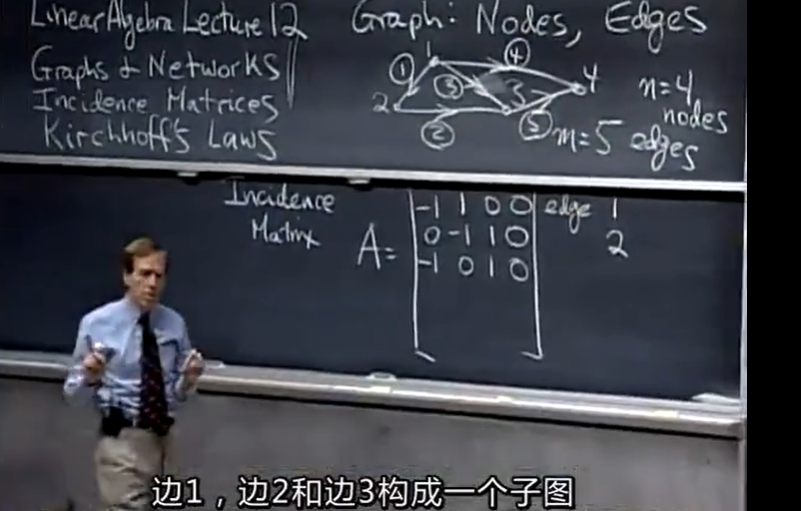 Linear Algebra Lecture 12
Graphs & Networks
Incidence Matrices
Kirchhoff's Laws
Graph: Nodes, Edges
1 ④
① ③ 4
2 3
② ⑤
n=4
nodes
m=5 edges
Incidence
Matrix
A=
-1 1 0 0 edge 1
0 -1 1 0 2
-1 0 1 0
边1，边2和边3构成一个子图